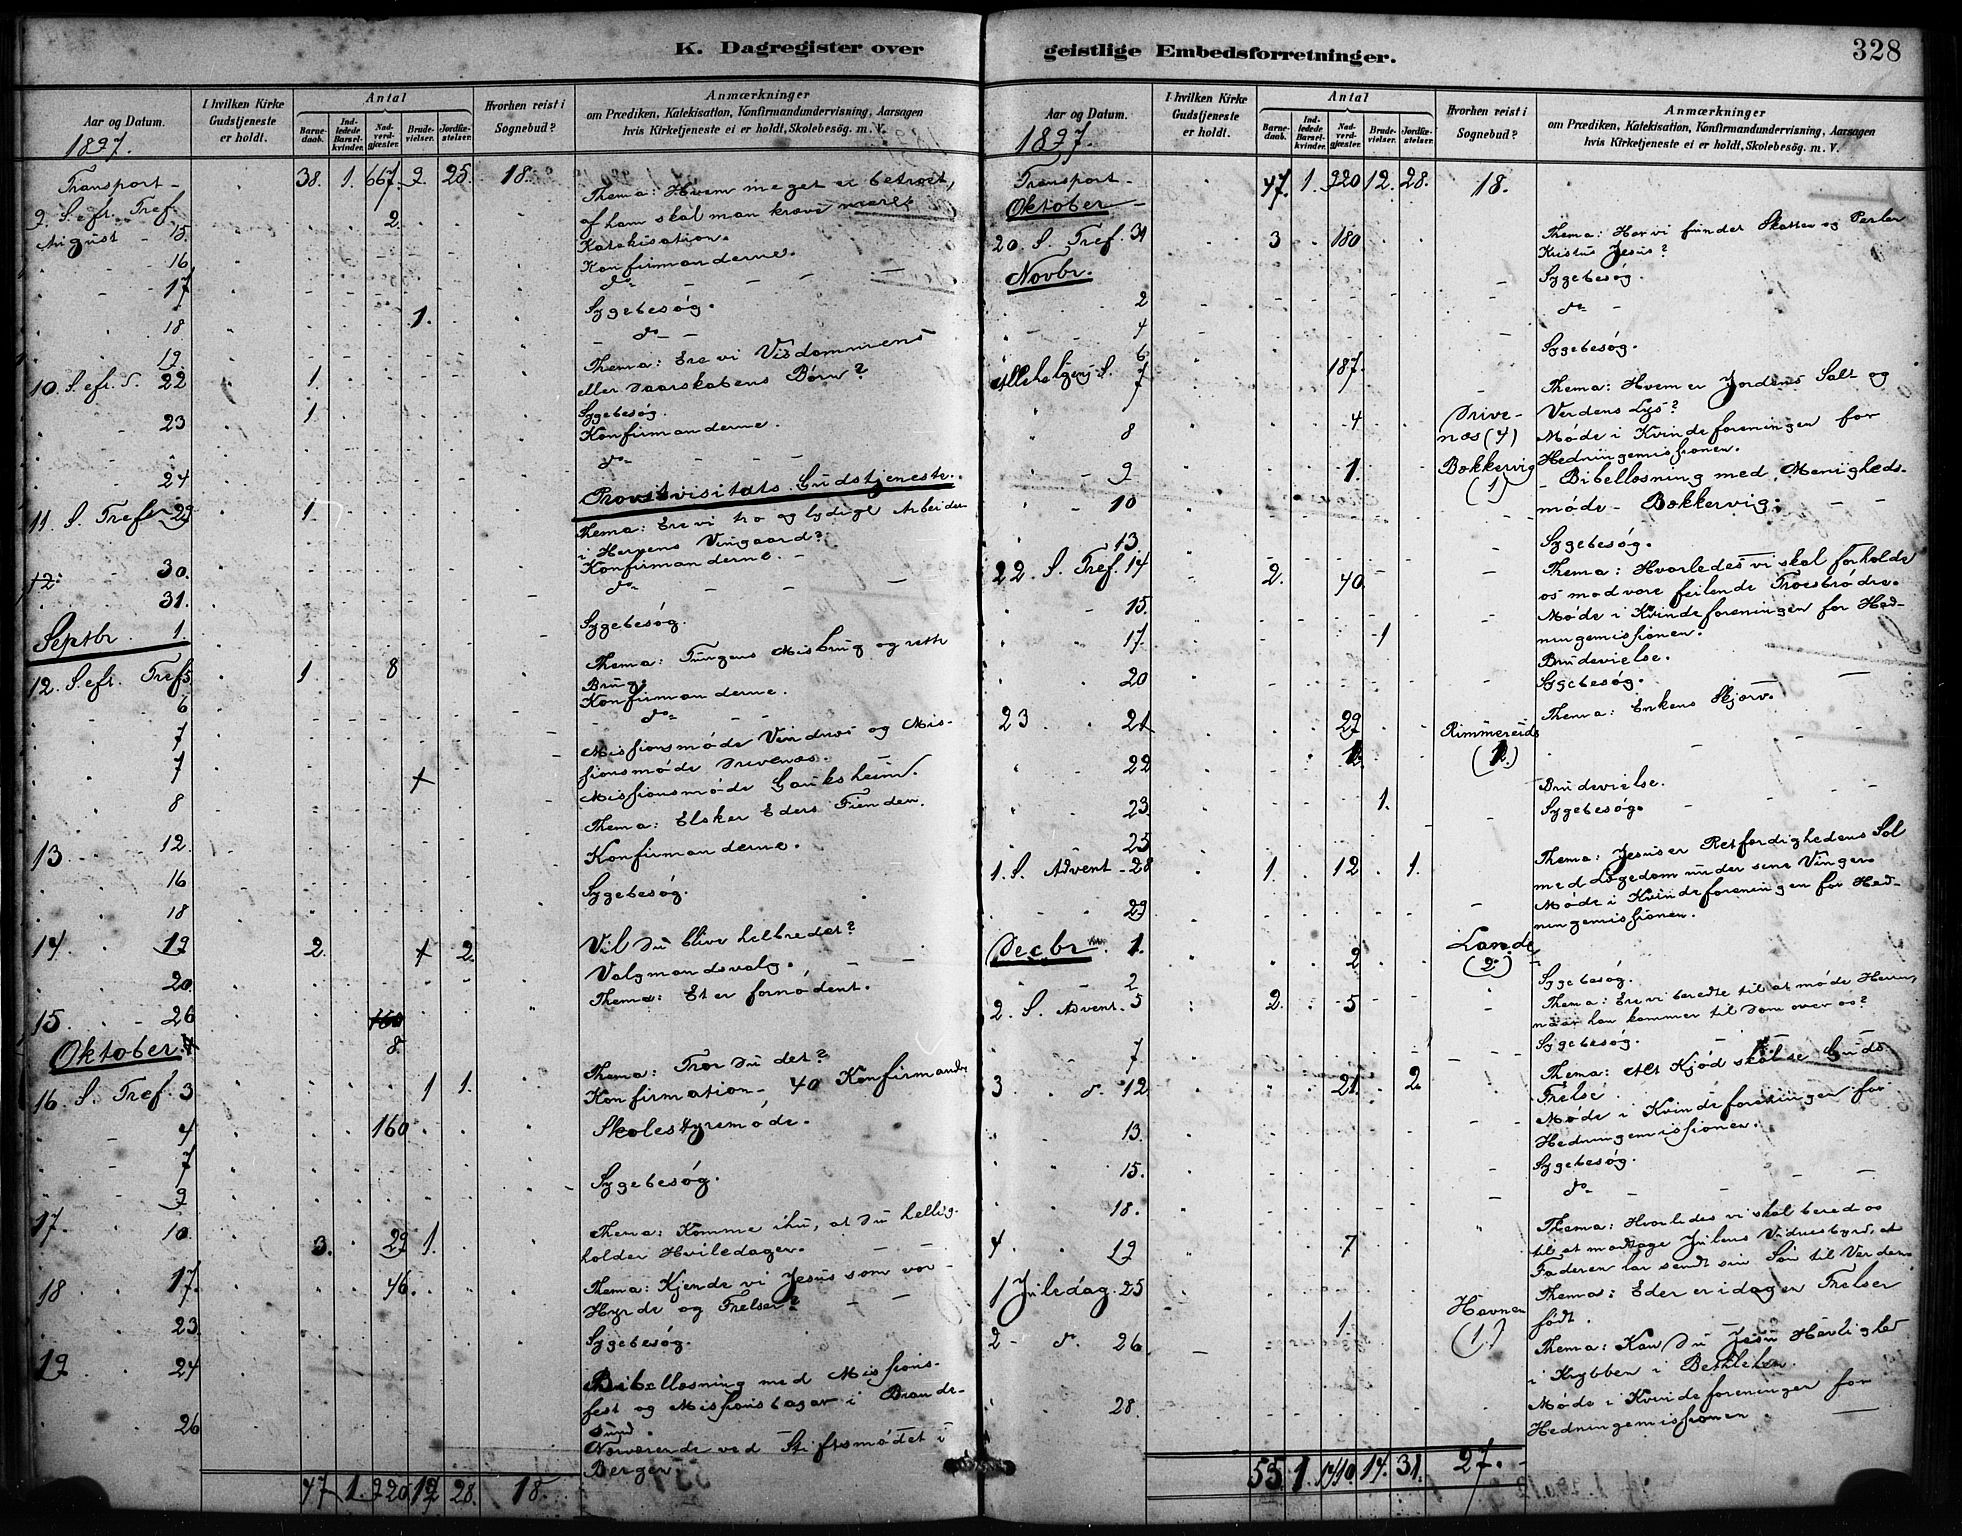 K. Dagregister over
Aar og Datum.
1897.
I hvilken Kirke
Gudstjeneste
er holdt.
Antal
Barne-
daab.
Ind-
ledede
Barsel-
kvinder.
Nad-
verd-
gjæster.
Brude-
vielser.
Jordfæ-
stelser.
Hvorhen reist i
Sognebud?
Anmærkninger
om Prædiken, Katekisation, Konfirmandundervisning, Aarsagen
hvis Kirketjeneste ei er holdt, Skolebesög. m. V.
Transport - 38. 1. 667. 9. 25. 18.
Thema: Hvem meget er betroet,
9. S. eft. Tref. 2.
af ham skal man kræve mere
August - 15.
Katekisation.
16 Konfirmanderne.
17 do - - -
1. Sygebesøg.
18 do -
19.
Thema: Ere vi Visdommens
10. S. eft. 22 1.
eller Daarskabens Børn?
1 Sygebesøg.
23 Konfirmanderne.
24 do - -
Provstvisitats Gudstjeneste.
11. S. Tref. 29 1.
Thema: Ere vi tro og lydige Arbeider
i Herrens Vingaard?
30. Konfirmanderne. -
31. do - -
Septbr 1. Sygebesøg.
12. S. eft. Tref 5 1 8
Thema: Tungens Misbrug og rette
Brug.
6 Konfirmanderne.
7 do - -
Missionsmøde og Mis-
7 sionsmøde Drivenæs.
8 Missionsmøde Gauksheim.
Thema: Elsker Eders Fiender.
13 12.
16 Konfirmanderne.
18 Sygebesøg.
14. 19 2. 2.
Vil Du blive helbredet?
20. Valgmandsvalg. -
15. 26 160
Thema: Et er fornødent.
Oktober. 8.
16. S. Tref. 3 1 1.
Thema: Tror Du det?
Konfirmation, 40 Konfirmander
4 160 Skolestyremøde.
7
9 Sygebesøg.
17. 10. 3. 29 1.
Thema: Komme ihu, at Du hellig-
holder Hviledagen. -
18 17. 46.
Thema: Kjende vi Jesus som vor -
Hyrde og Frelser? -
23. Sygebesøg.
19 24
Bibellæsning med Missions-
fest og Missionsbasar i Brande-
sund.
26 Nærværende ved Stiftsmødet i
Bergen
47 1. 920 12 28. 18.
geistlige Embedsforretninger.
328
Aar og Datum.
1897.
I hvilken Kirke
Gudstjeneste
er holdt.
Antal
Barne-
daab.
Ind-
ledede
Barsel-
kvinder.
Nad-
verd-
gjæster.
Brude-
vielser.
Jordfæ-
stelser.
Hvorhen reist i
Sognebud?
Anmærkninger
om Prædiken, Katekisation, Konfirmandundervisning, Aarsagen
hvis Kirketjeneste ei er holdt, Skolebesög. m. V.
Transport - 47. 1. 920 12. 28. 18.
Oktober -
20. S. Tref. 31 3 180
Thema: Har vi fundet Skatten og Perlen
Kristus Jesus?
Novbr.
Sygebesøg.
2 do -
4
6 Sygebesøg.
Allehelgens S. 7 187.
Thema: Hvem er Jordens Salt og
Verdens Lys?
8 4 Drive-
næs (4)
Møde i Kvindeforeningen for
Hedningemissionen.
9 1. Bækkervig
(1)
- Bibellæsning med Menigheds-
10 møde - Bækkervig. - -
13. Sygebesøg.
22. S. Tref. 14 2. 40.
Thema: Hvorledes vi skal forholde
os mod vore feilende Troesbrødre.
15. Møde i Kvindeforeningen for Hed-
ningemissionen.
17. 1 Brudevielse.
20 Sygebesøg. -
23 21 29
Thema: Enkens Skjærv.
22 Rimmereide
Brudevielse.
23. 1. Sygebesøg. -
25
1. S. Advent - 28 1. 12 1.
Thema: Jesus er Retfærdighedens Sol
med Lægedom under sine Vinger.
29 - Møde i Kvindeforeningen for Hed-
ningemissionen.
Decbr 1. 2 Lande
(2)
2 Sygebesøg.
2. S. Advent. 5 2. 5
Thema: Ere vi beredte til at møde Herren,
naar han kommer til Dom over os?
7 Sygebesøg. -
3 12 21. 2
Thema: Alt Kjød skal se Guds
Frelse.
13. Møde i Kvindeforeningen for
Hedningemissionen.
15. Sygebesøg.
18. do - -
4 19 7
Thema: Hvorledes vi skal berede os
til at modtage Julens Vidnesbyrd, at
Faderen har sendt sin Søn til Verden.
1 Juledag. 25
Thema: Eder er idag en Frelser
født.
2 - do. 26 1. Havnen
(1.)
Thema: Kan Du Jesu Herlighed
i Krybben i Bethlehem
28. Møde i Kvindeforeningen for
Hedningemissionen. -
55 1. 1410 14. 31. 27.